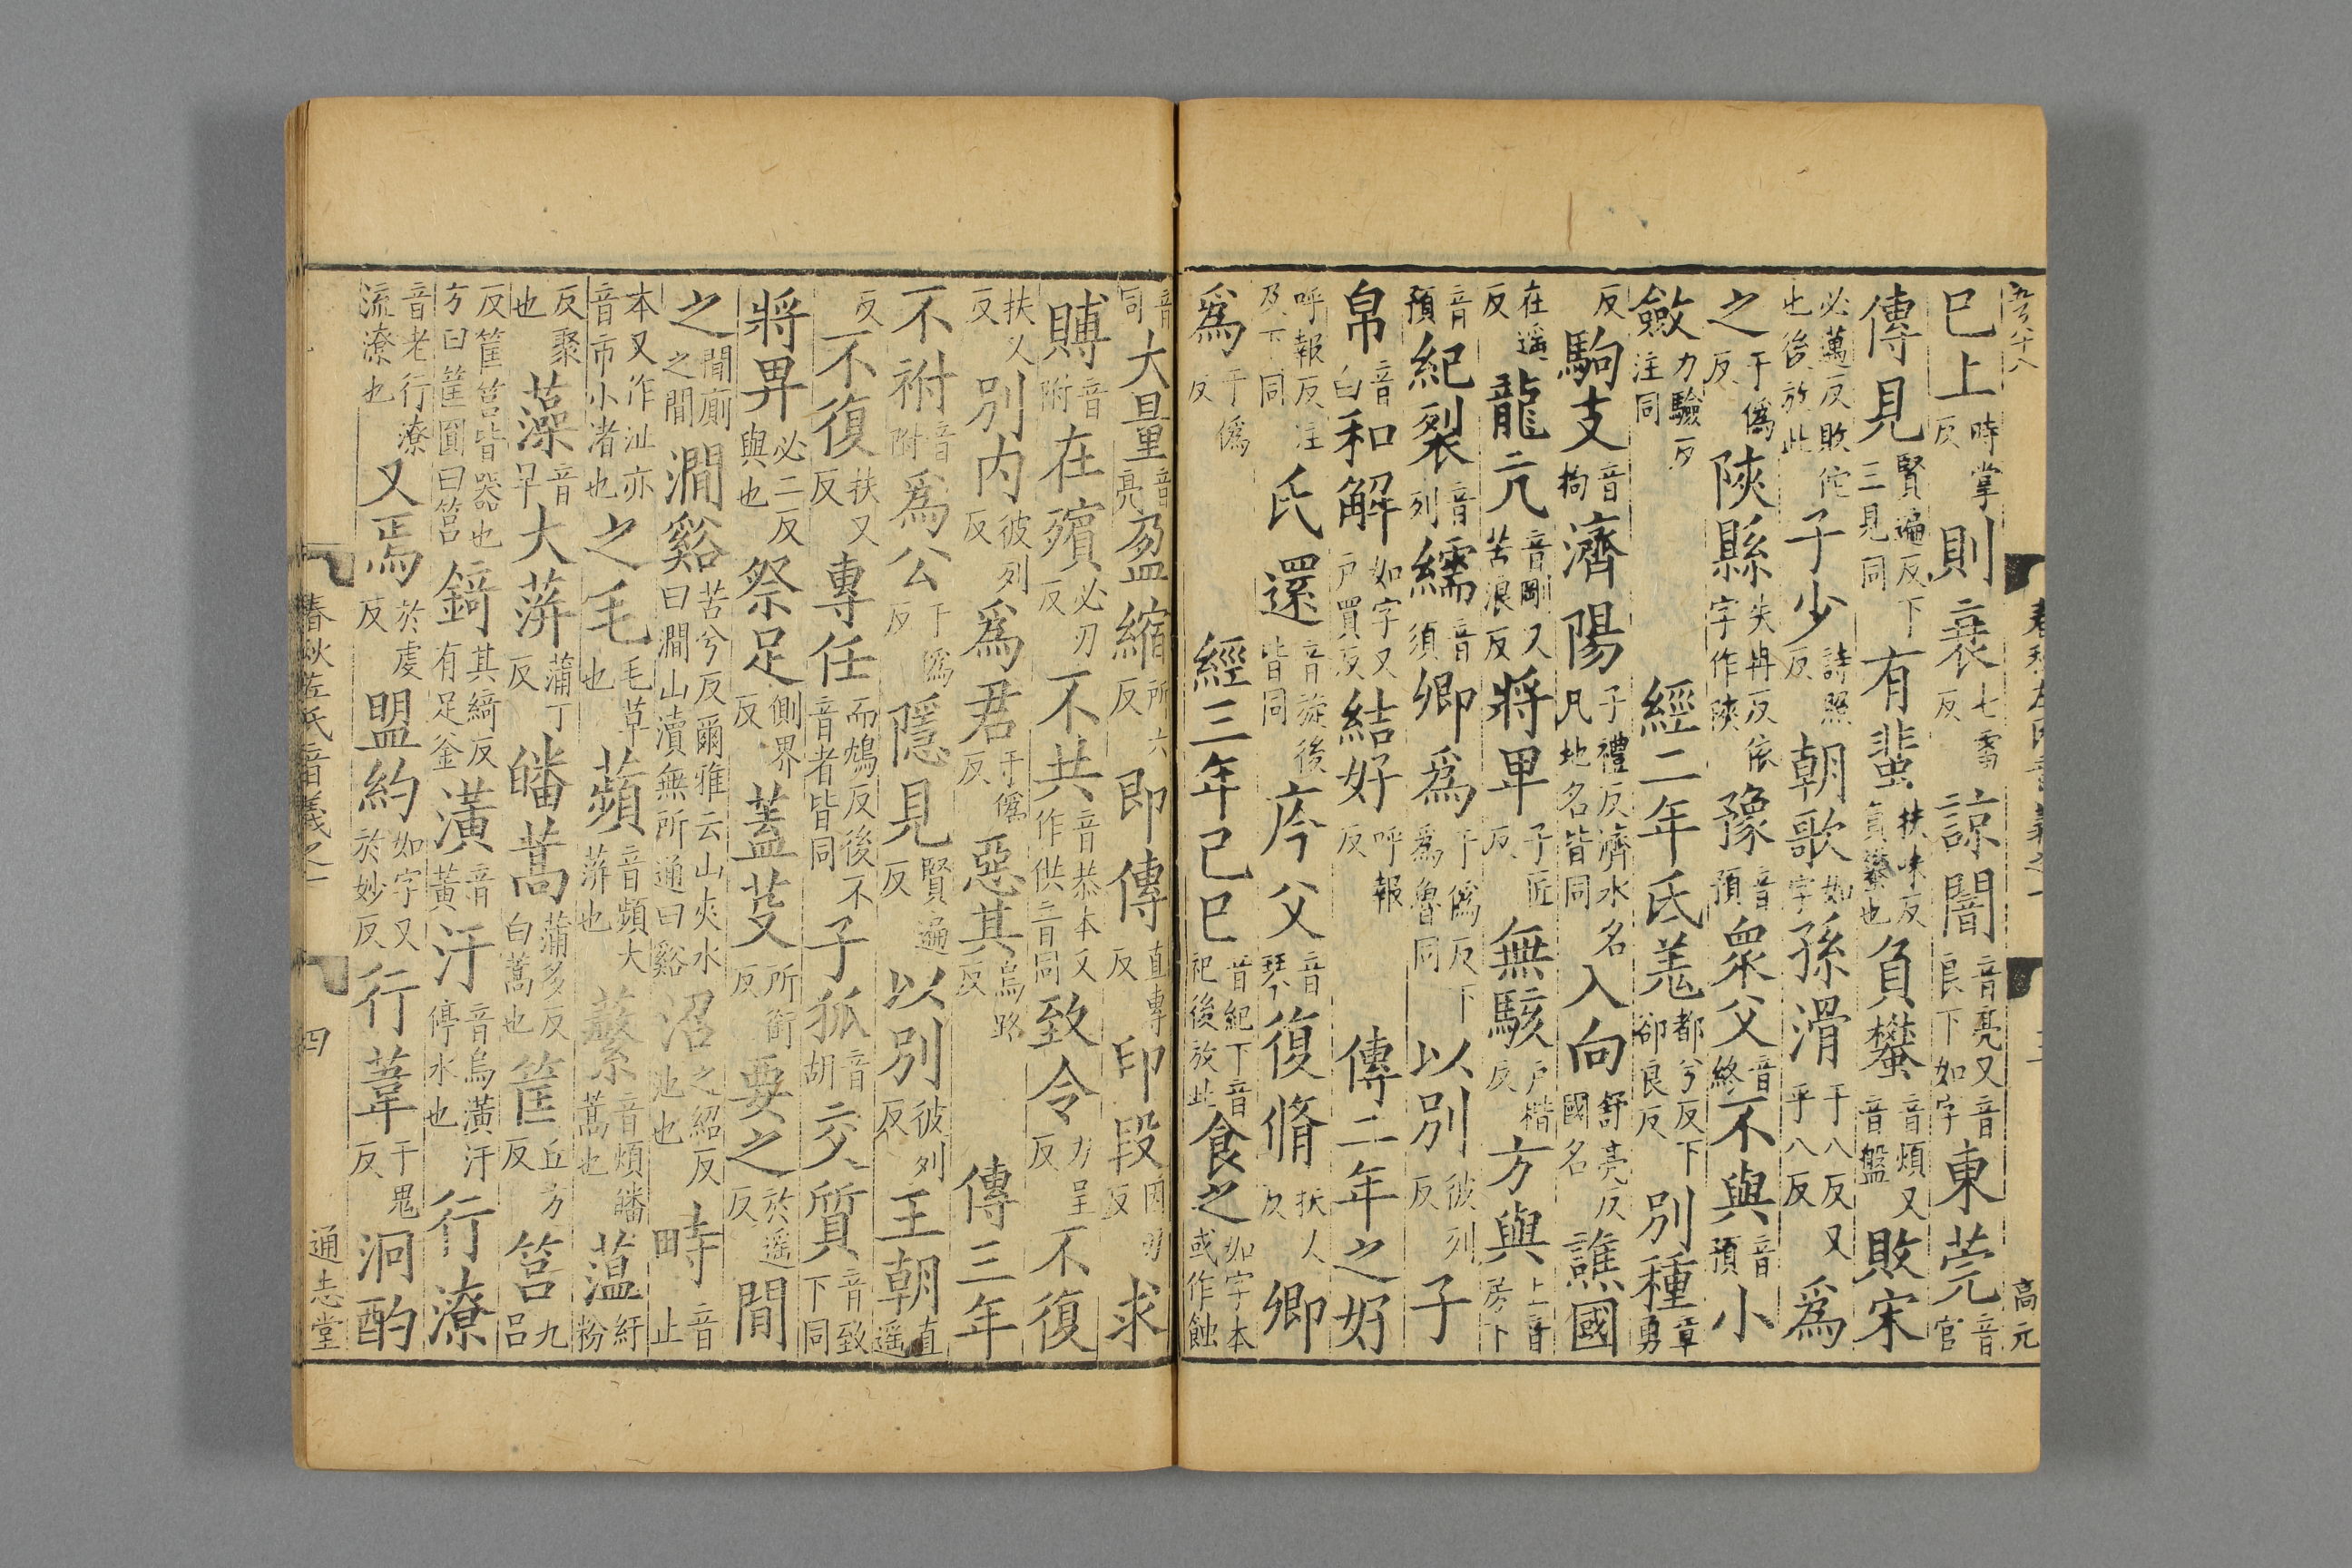 巳上時掌反則衰七雷反諒闇音亮又音良下如字東莞音官
傳見賢遍反下三見同有蜚扶味反負蠜也負蠜音煩又音盤敗宋
必萬反敗佗也後放此子少詩照反朝歌如字孫滑于八反又乎八反爲
之于僞反陝縣失冉反依字作陝豫音預衆父音終不與音預小
斂力驗反注同經二年氐羌都兮反下郤良反別種章勇
反駒支音拘濟陽子禮反濟水名凡地名皆同入向舒亮反國名譙國
在遥反龍亢音剛又苦浪反將卑子匠反無駭户楷反方與上音房下
音預紀裂音列繻音須卿爲于僞反下爲魯同以別彼列反子
帛音白和解如字又户買反結好呼報反傳二年之好
呼報反注及下同氏還音旋後皆同庈父音琴復脩扶又反卿
爲于僞反經三年己巳音紀下音祀後放此食之如字本或作蝕
音同大量音亮盈縮所六反即傳直專反印段因刃反求
賻音附在殯必刃反不共音恭本又作供音同致令力呈反不復
扶又反別内彼列反爲君于僞反惡其烏路反傳三年
不祔音附爲公于僞反隱見賢遍反以別彼列反王朝直遥
反不復扶又反專任而鴆反後不音者皆同子狐音胡交質音致下同
將畀必二反與也祭足側界反蓋芟所銜反要之於遥反間
之間廁之間澗谿苦兮反爾雅云山夾水曰澗山瀆無所通曰谿沼之紹反池也畤音止
本又作沚亦音市小渚也之毛毛草也蘋音頻大蓱也蘩音煩皤蒿也薀紆粉
反聚也藻音早大蓱蒲丁反皤蒿蒲多反白蒿也筐丘方反筥九呂
反筐筥皆器也方曰筐圓曰筥錡其綺反有足釜潢音黄汙音烏潢汙停水也行潦
音老行潦流潦也又焉於虔反盟約如字又於妙反行葦于鬼反泂酌
春秋左氏音義之一
四
通志堂
高元